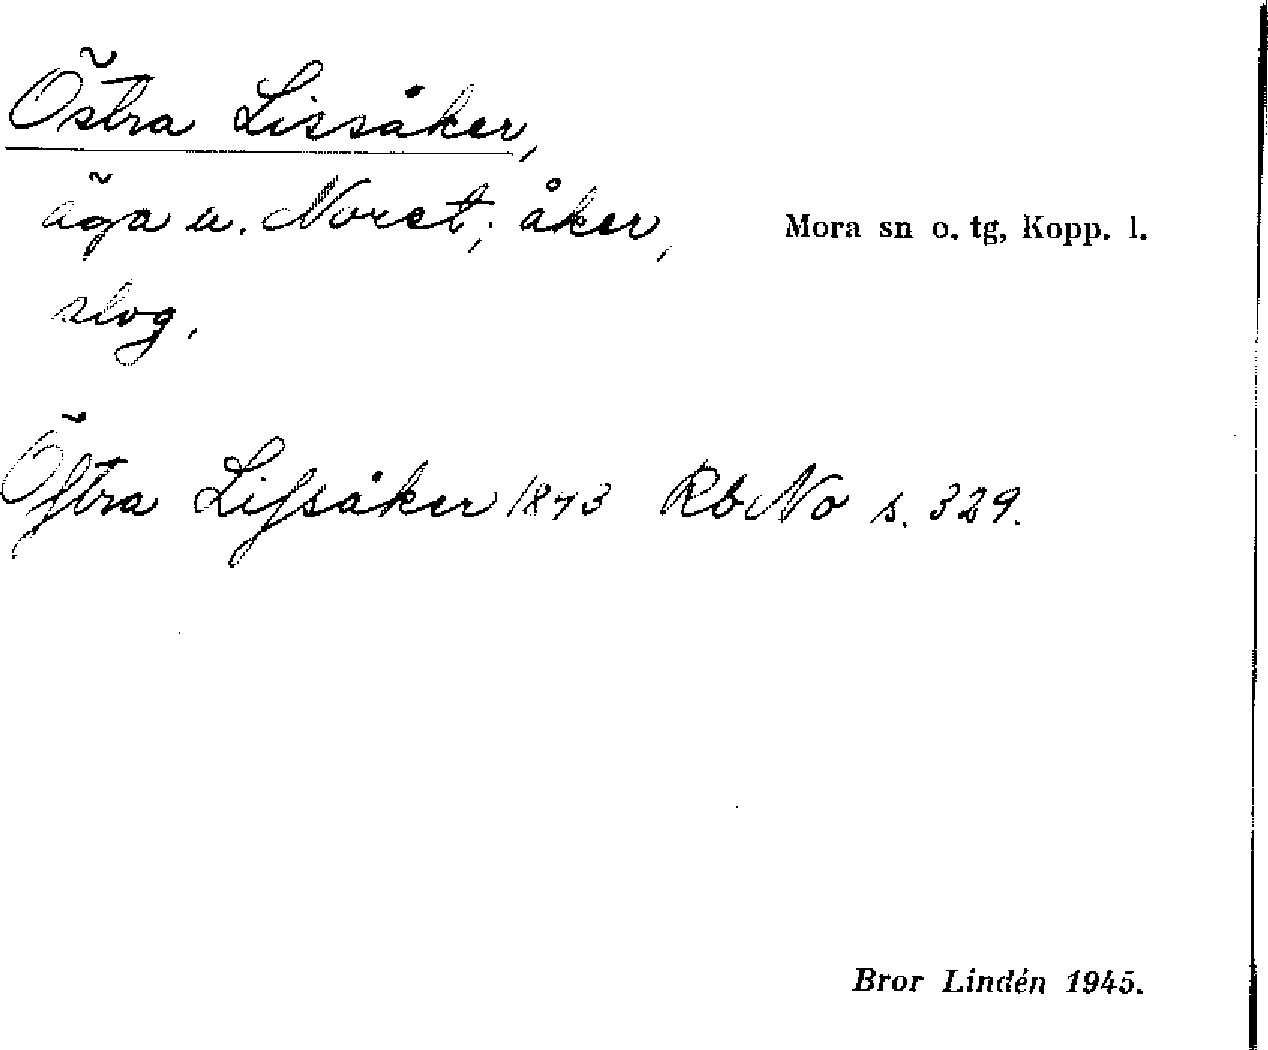 Östra Lissåker,
äga u. Noret; åker,
slog.
Mora sn o. tg, Kopp. l.
Öſtra Liſsåker 1873 Rb No s. 329.
Bror Lindén 1945.